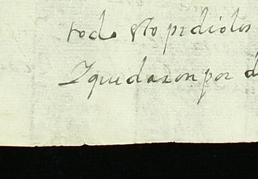 todo esto pidiolos
I quedaron por d